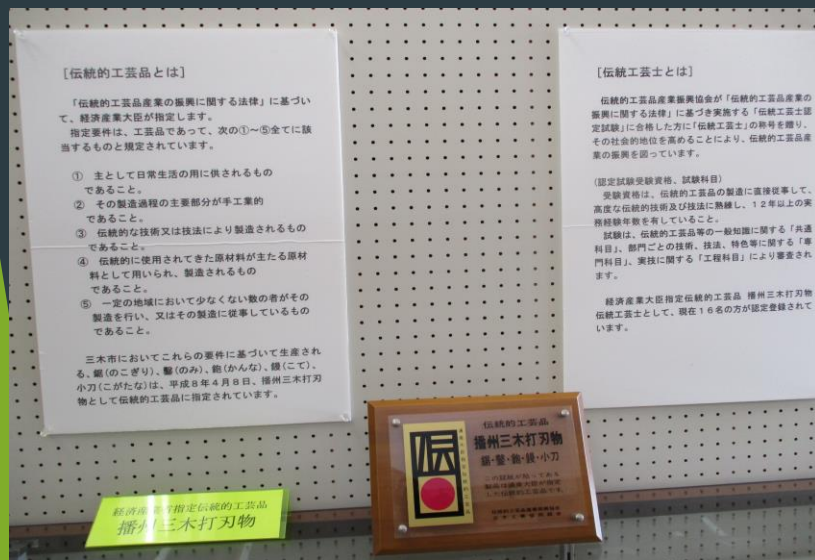 [伝統的工芸品とは]
「伝統的工芸品産業の振興に関する法律」に基づい
て、経済産業大臣が指定します。
指定要件は、工芸品であって、次の①~⑤全てに該
当するものと規定されています。
① 主として日常生活の用に供されるもの
であること。
② その製造過程の主要部分が手工業的
であること。
③ 伝統的な技術又は技法により製造されるもの
であること。
④ 伝統的に使用されてきた原材料が主たる原材
料として用いられ、製造されるもの
であること。
⑤ 一定の地域において少なくない数の者がその
製造を行い、又はその製造に従事しているもの
であること。
三木市においてこれらの要件に基づいて生産され
る、鋸(のこぎり)、鑿(のみ)、鉋(かんな)、鏝(こて)、
小刀(こがたな)は、平成8年4月8日、播州三木打刃
物として伝統的工芸品に指定されています。
[伝統工芸士とは]
伝統的工芸品産業振興協会が「伝統的工芸品産業の
振興に関する法律」に基づき実施する「伝統工芸士認
定試験」に合格した方に「伝統工芸士」の称号を贈り、
その社会的地位を高めることにより、伝統的工芸品産
業の振興を図っています。
(認定試験受験資格、試験科目)
受験資格は、伝統的工芸品の製造に直接従事して、
高度な伝統的技術及び技法に熟練し、12年以上の実
務経験年数を有していること。
試験は、伝統的工芸品等の一般知識に関する「共通
科目」、部門ごとの技術、技法、特色等に関する「専
門科目」、実技に関する「工程科目」により審査され
ます。
経済産業大臣指定伝統的工芸品 播州三木打刃物
伝統工芸士として、現在16名の方が認定登録されて
います。
経済産業省指定伝統的工芸品
播州三木打刃物
伝
伝統的工芸品
播州三木打刃物
鋸・鑿・鉋・鏝・小刀
この証紙が貼ってある
製品は通産大臣が指定
した伝統的工芸品です。